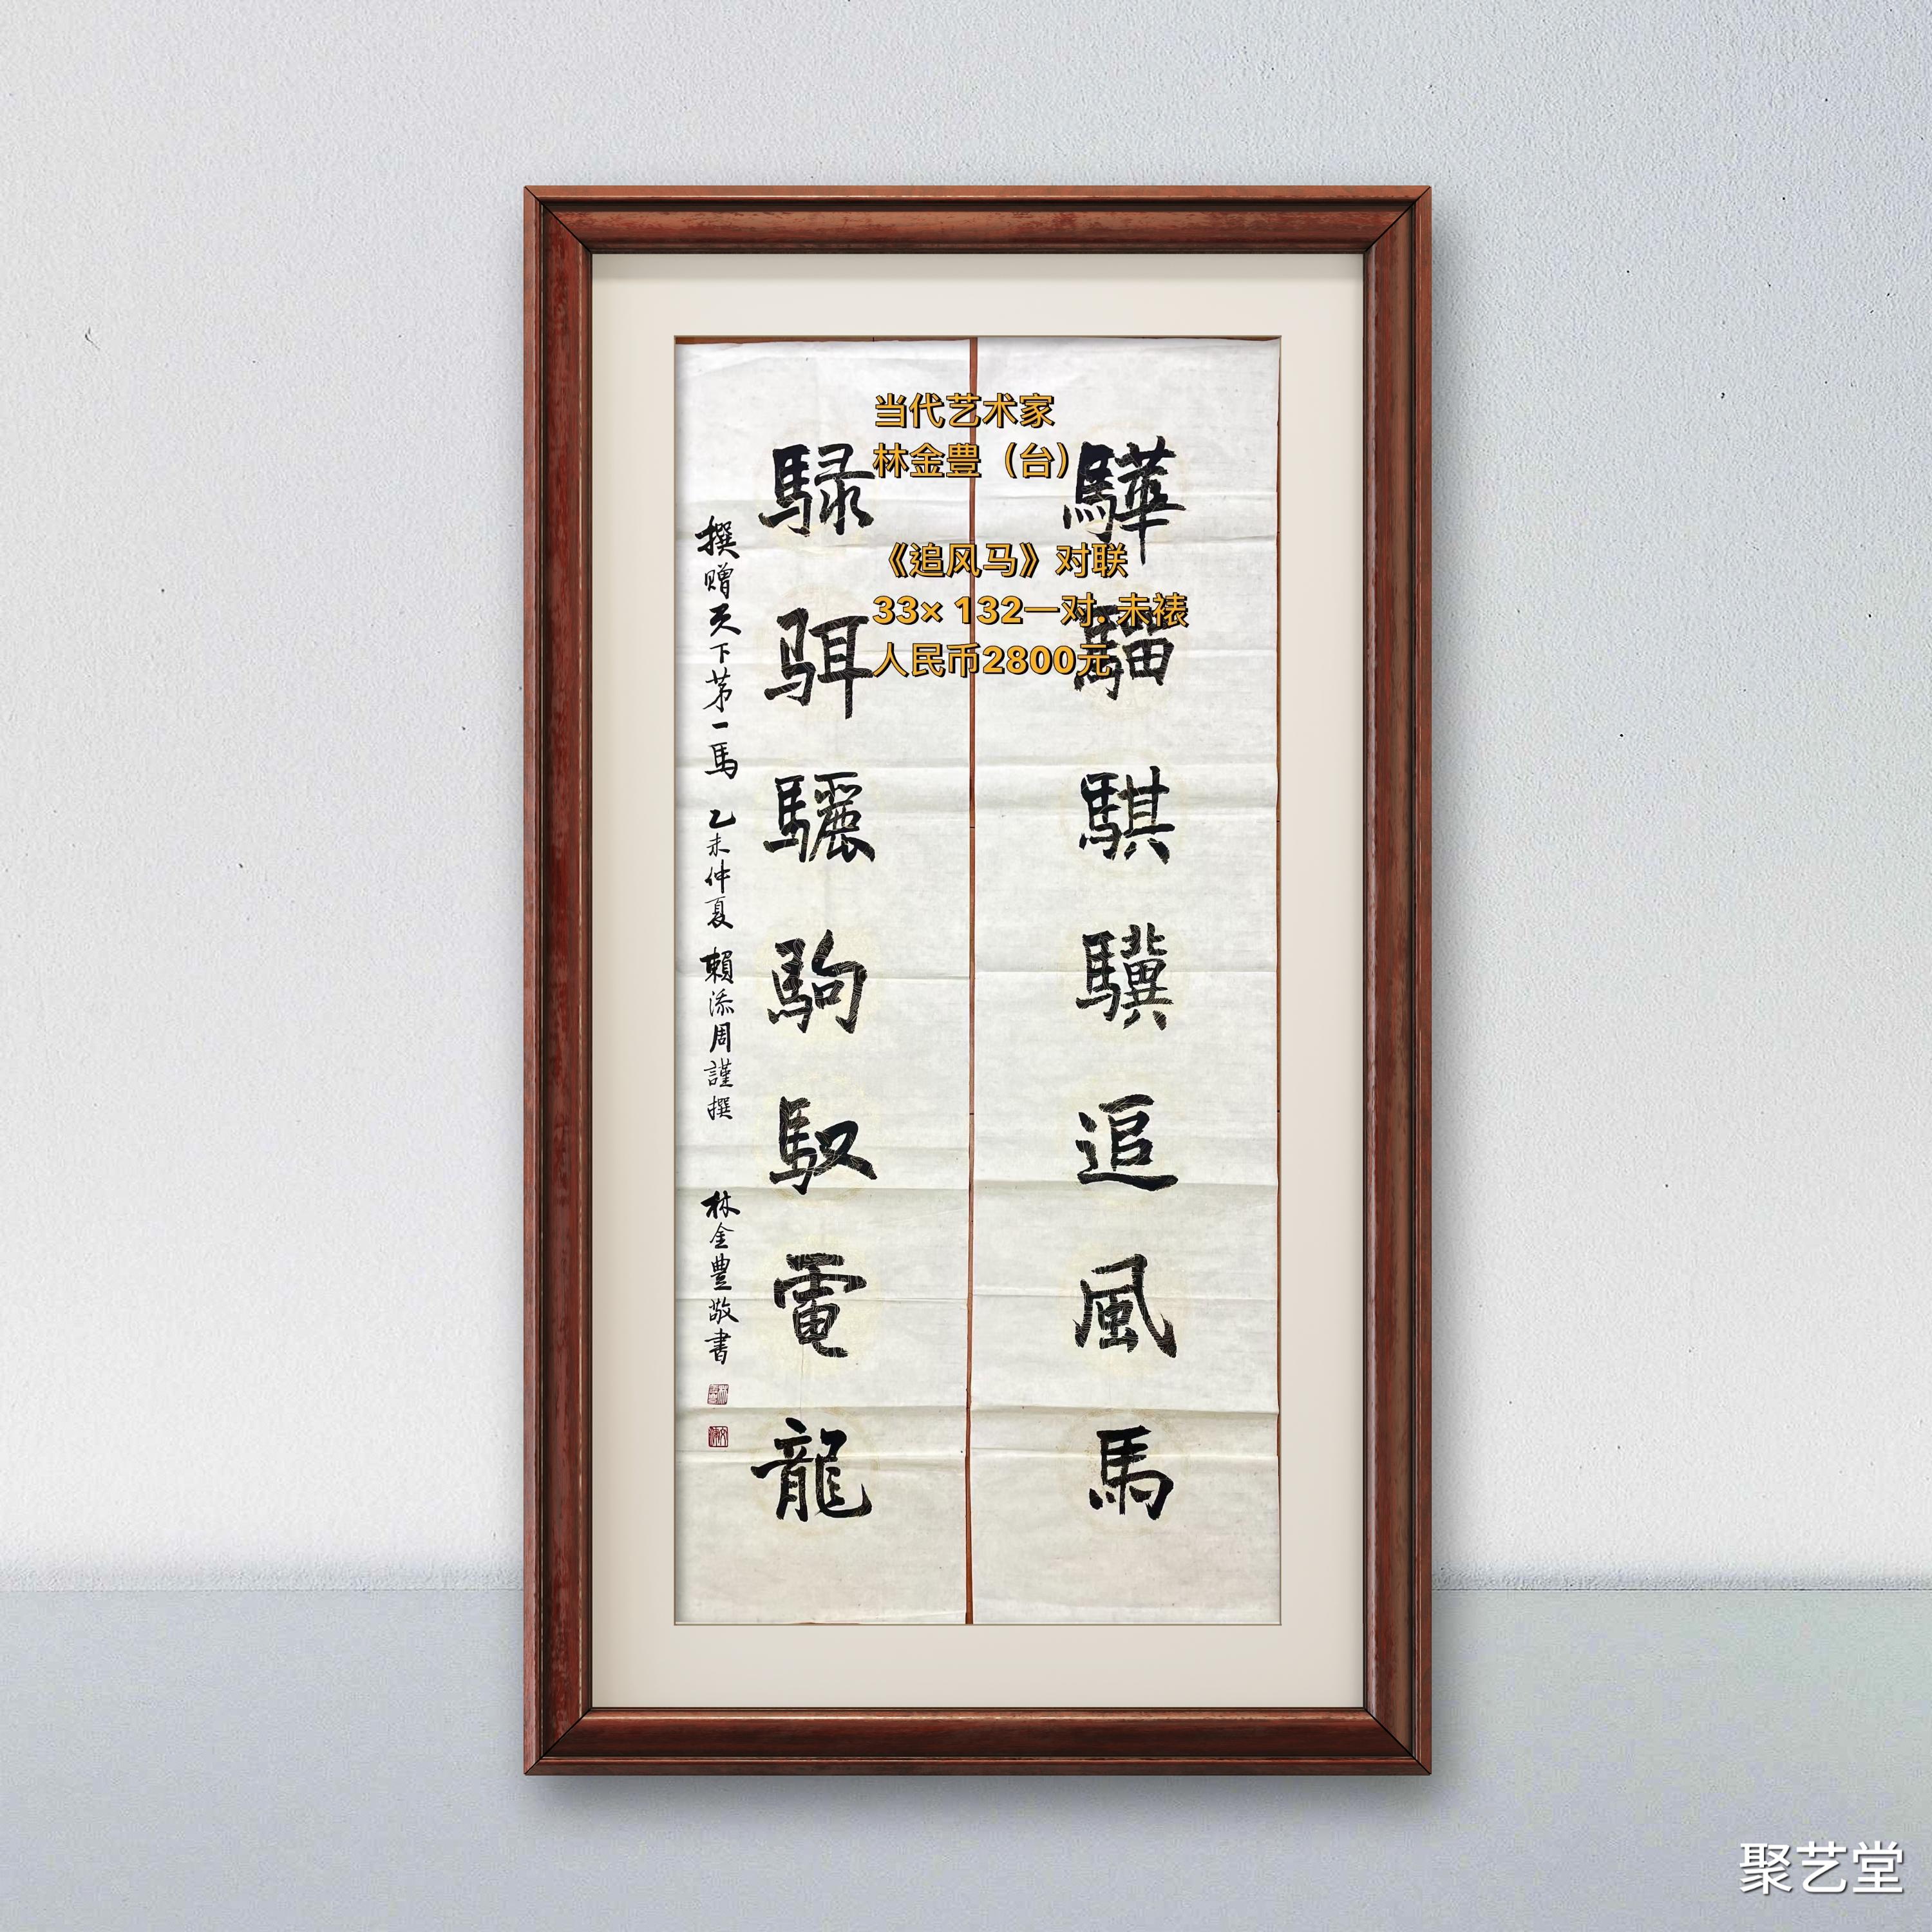 当代艺术家
林金豊（台）
《追风马》对联
33× 132一对. 未裱
人民币2800元
驊騮騏驥追風馬
騄駬驪駒馭電龍
撰赠天下茅一馬 乙未仲夏 賴添周謹撰 林金豊敬書
聚艺堂